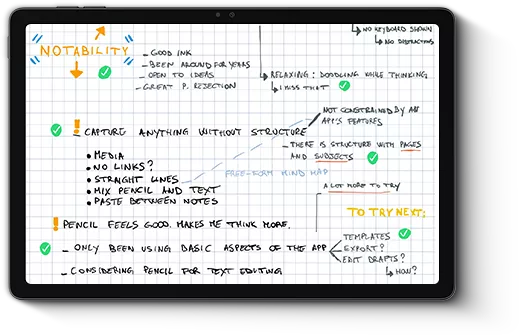 NOTABILITY
- GOOD INK
- BEEN AROUND FOR YEARS
- OPEN TO IDEAS
- GREAT P. REJECTION
NO KEYBOARD SHOWN
NO DISTRACTIONS
RELAXING: DOODLING WHILE THINKING
I MISS THAT
! CAPTURE ANYTHING WITHOUT STRUCTURE
• MEDIA
• NO LINKS?
• STRAIGHT LINES
• MIX PENCIL AND TEXT
• PASTE BETWEEN NOTES
NOT CONSTRAINED BY AN
APP'S FEATURES
- THERE IS STRUCTURE WITH PAGES
AND SUBJECTS
FREE-FORM MIND MAP
A LOT MORE TO TRY
! PENCIL FEELS GOOD. MAKES ME THINK MORE.
- ONLY BEEN USING BASIC ASPECTS OF THE APP
- CONSIDERING PENCIL FOR TEXT EDITING
TO TRY NEXT:
TEMPLATES
EXPORT?
EDIT DRAFTS?
HOW?